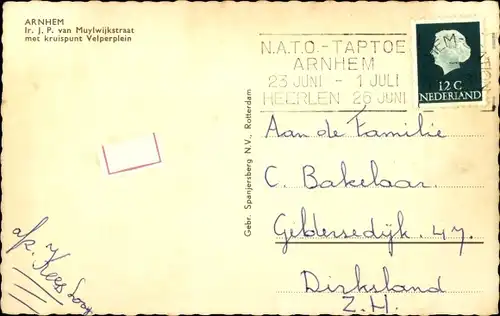 ARNHEM
Ir. J. P. van Muylwijkstraat
met kruispunt Velperplein
N.A.T.O.-TAPTOE
ARNHEM
23 JUNI - 1 JULI
HEERLEN 26 JUNI
12 C
NEDERLAND
Gebr. Spanjersberg N.V., Rotterdam
Aan de Familie
C. Bakelaar.
Geldersedijk. 47.
Dirksland
Z.H.
Kees